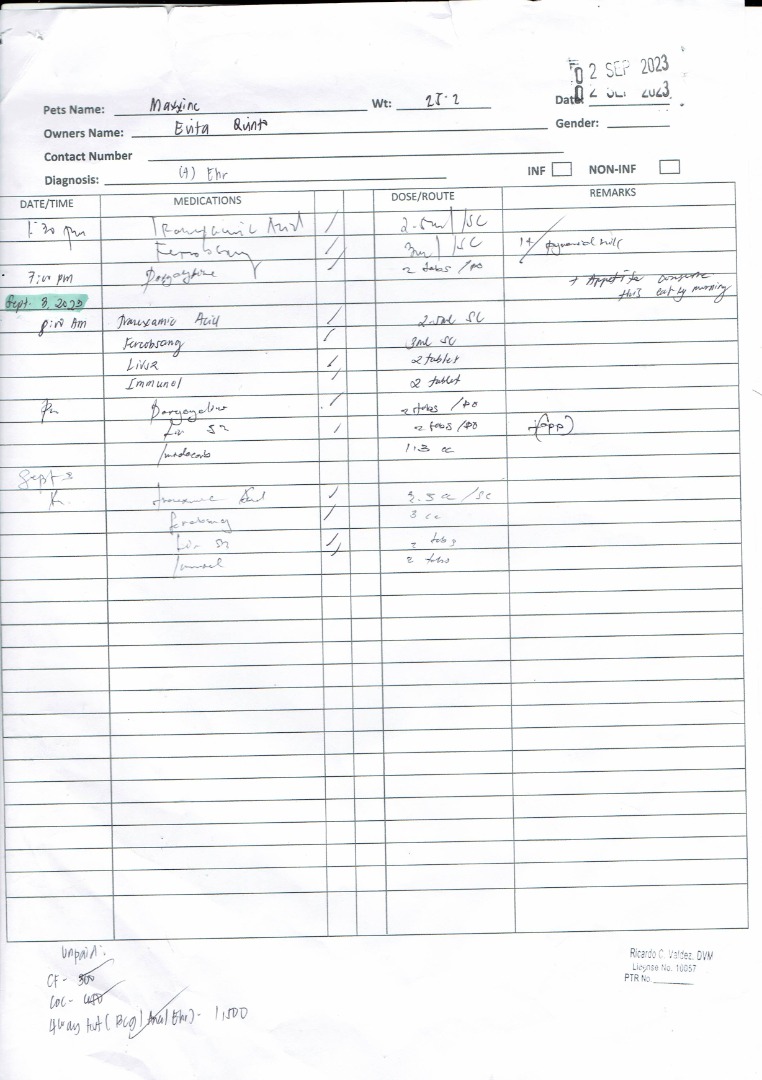 02 SEP 2023
02 SEP 2023
Pets Name: Maxxine Wt: 25.2 Date:
Owners Name: Evita Quinto Gender:
Contact Number
Diagnosis: (+) Ehr INF NON-INF
DATE/TIME MEDICATIONS DOSE/ROUTE REMARKS
1:30 pm Tranexamic Acid / 2.5ml /SC
/ 3ml /SC 14
7:00 pm Doxycycline / 2 tabs /PO + Appetite consume
Sept. 3, 2023 this eat by morning
8:00 Am Tranexamic Acid / 2.5ml SC
Ferrobsang / 3ml SC
Liv52 / 2 tablet
Immunol / 2 tablet
pm Doxycycline / 2 tabs /PO
Liv 52 / 2 tabs /PO (app)
1.3 cc
Sept 3
Tranexamic Acid / 2.5 cc /SC
/ 3 cc
Liv 52 / 2 tabs
Immunol / 2 tabs
Unpaid:
CF - 500
CBC - 480
4way test (Bcg/Ana/Ehr) - 1,500
Ricardo C. Valdez, DVM
License No. 10057
PTR No.